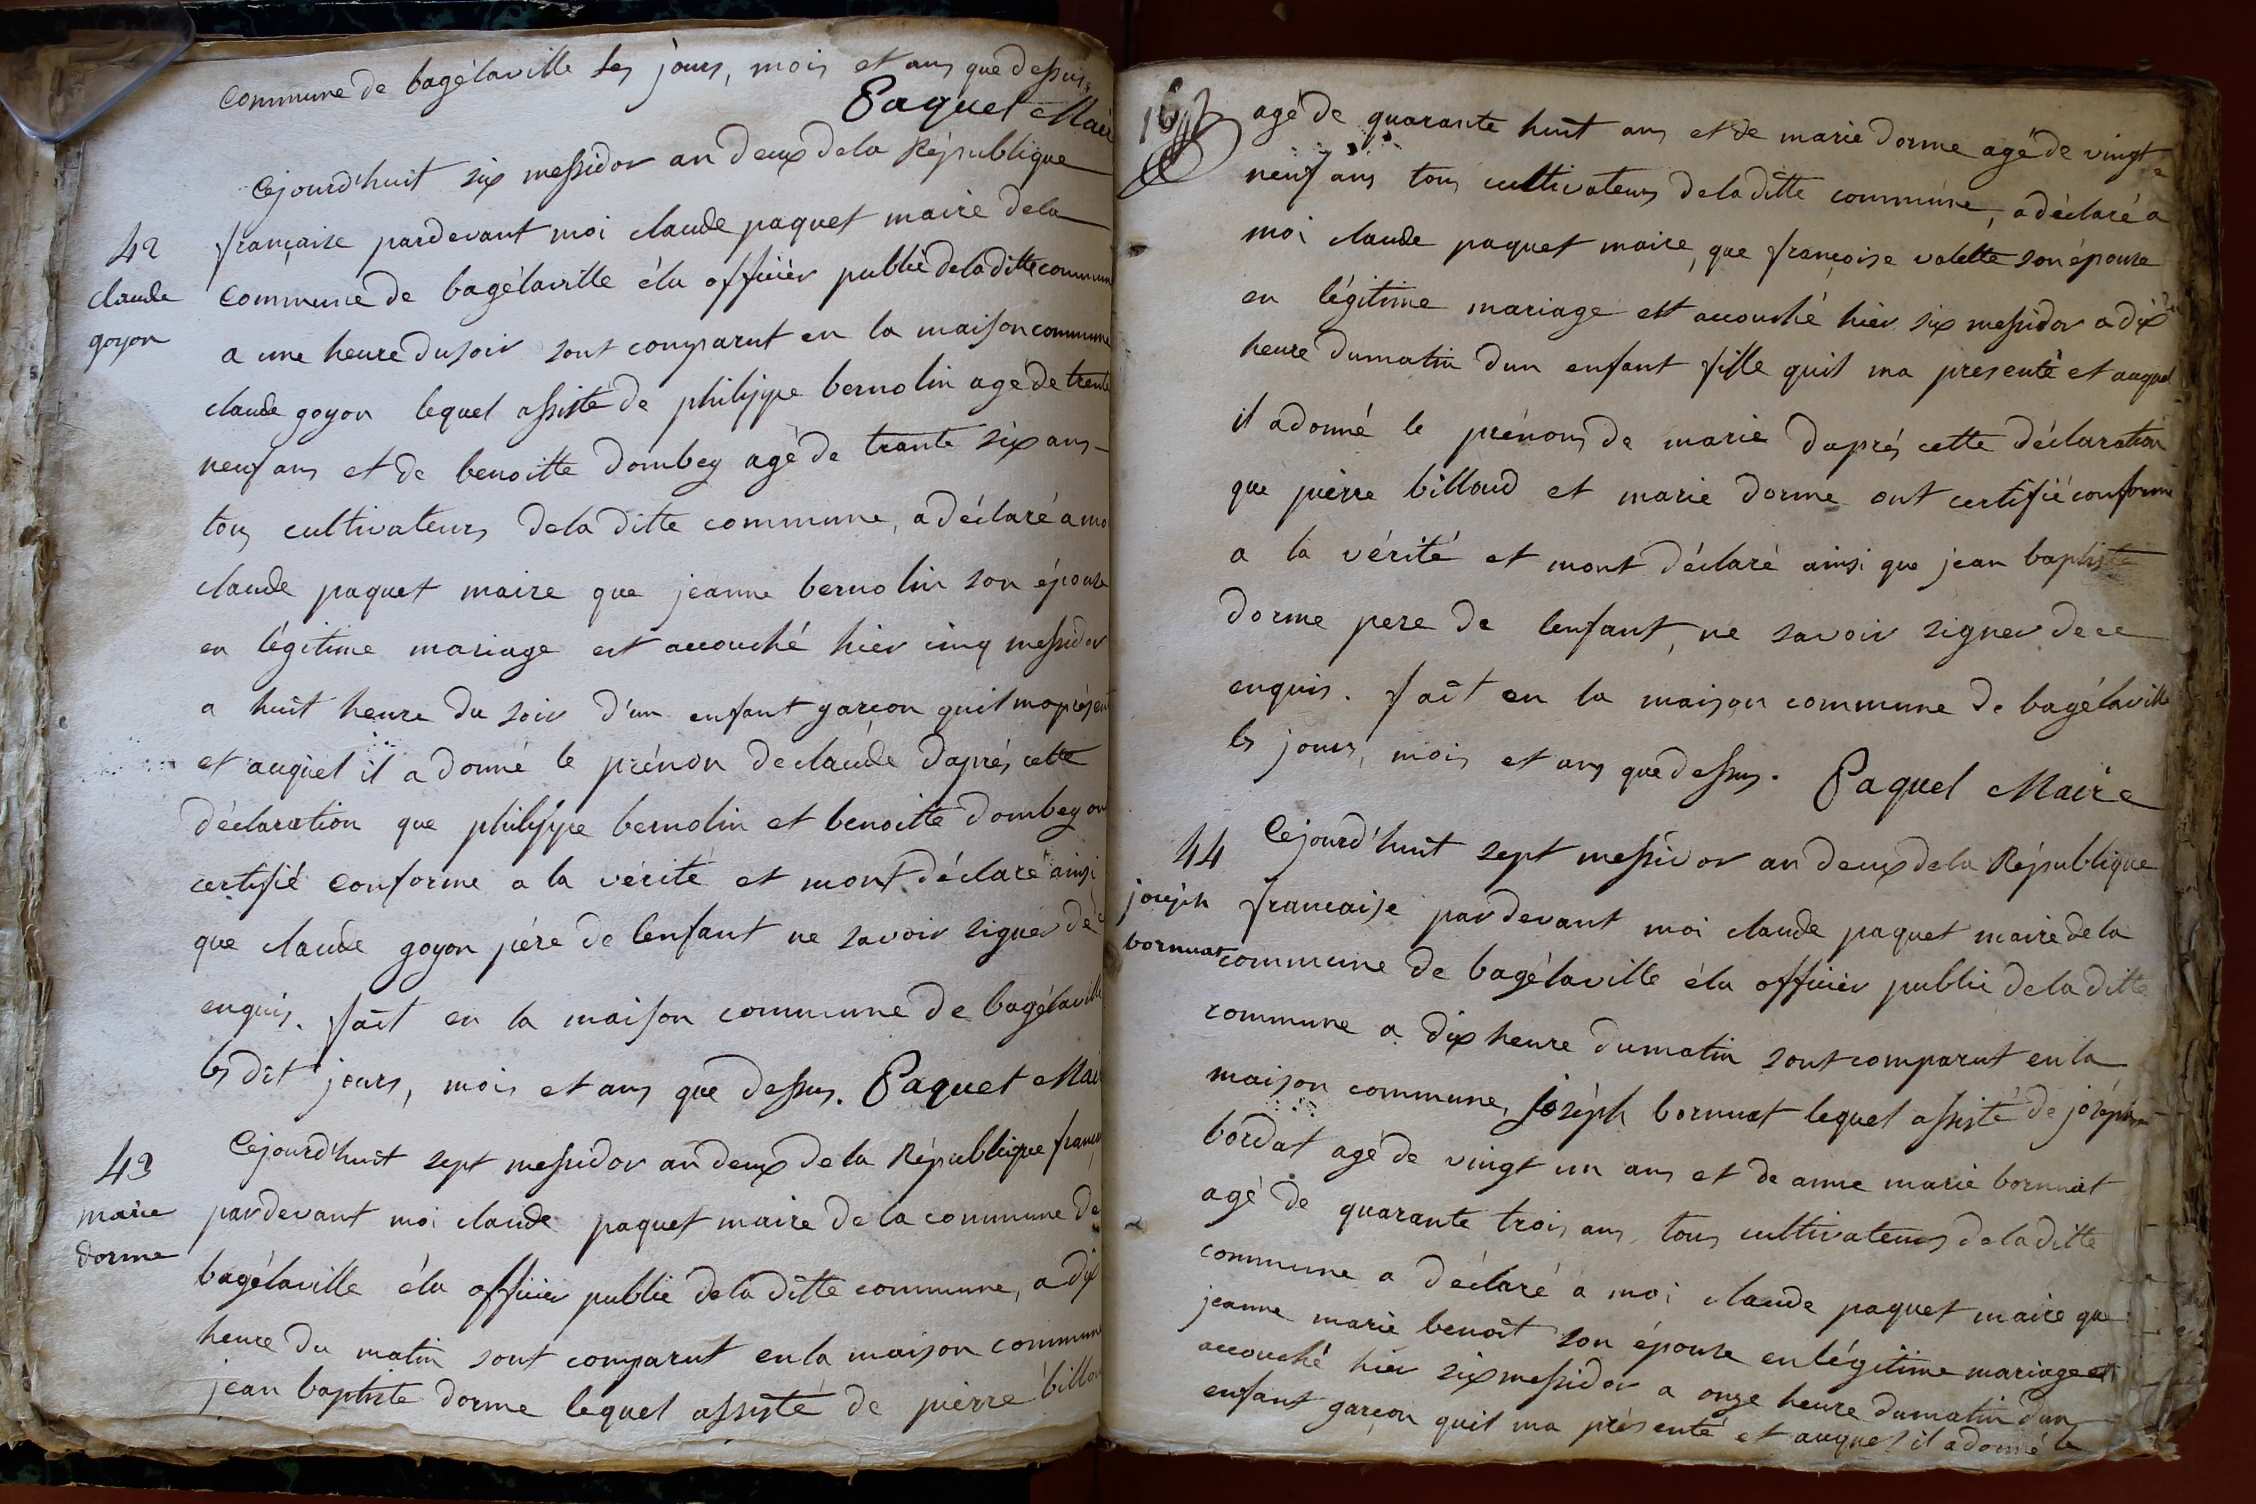 Commune de bagélaville les jours, mois et ans que dessus.
Paquet Mair
Cejourd'huit six messidor an deux de la République
42
claude
goyon
française pardevant moi claude paquet maire de la
Commune de bagélaville élu officier public de la ditte commun
a une heure du soir sont comparut en la maison commune
claude goyon lequel assisté de philippe bernolin agé de trente
neuf ans et de benoitte dombey agé de trante six ans
tous cultivateurs de la ditte commune, a déclaré a mo
claude paquet maire que jeanne bernolin son épouse
en légitime mariage est accouché hier cinq messidor
a huit heure du soir d'un enfant garçon quil ma présent
et auquel il a donné le prénon de claude daprés cette
déclaration que philippe bernolin et benoitte dombey on
certifié conforme a la vérité et mont déclaré ainsi
que claude goyon pére de lenfant ne savoir signer de ce
enquis. fait en la maison commune de bagélaville
les dit jours, mois et ans que dessus. Paquet Mai
43
marie
dorme
Cejourd'huit sept messidor an deux de la République franç
pardevant moi claude paquet maire de la commune de
bagélaville élu officier public de la ditte commune, a dix
heure du matin sont comparut en la maison commune
jean baptiste dorme lequel assisté de pierre billou
agé de quarante huit ans et de marie dorme agé de vingt
neuf ans tous cultivateurs de la ditte commune, a déclaré a
moi claude paquet maire, que françoise valette son épouse
en légitime mariage est accouché hier six messidor a dix
heure du matin dun enfant fille quil ma presenté et auquel
il a donné le prénons de marie daprés cette déclaration
que pierre billoud et marie dorme ont certifié conforme
a la vérité et mont déclaré ainsi que jean baptiste
dorme pere de lenfant, ne savoir signer de ce
enquis. fait en la maison commune de bagélaville
les jours, mois et ans que dessus. Paquet Maire
44
joseph
bornuat
Cejourd'huit sept messidor an deux de la République
francaise pardevant moi claude paquet maire de la
commune de bagélaville élu officier public de la ditte
commune a dix heure du matin sont comparut en la
maison commune, joséph bornuat lequel assisté de joséph
bordat agé de vingt un ans et de anne marie bornuat
agé de quarante trois ans, tous cultivateurs de la ditte
commune a déclaré a moi claude paquet maire que
jeanne marie benoit son épouse en légitime mariage est
accouché hier six messidor a onze heure du matin dun
enfant garçon quil ma présenté et auquel il a donné le